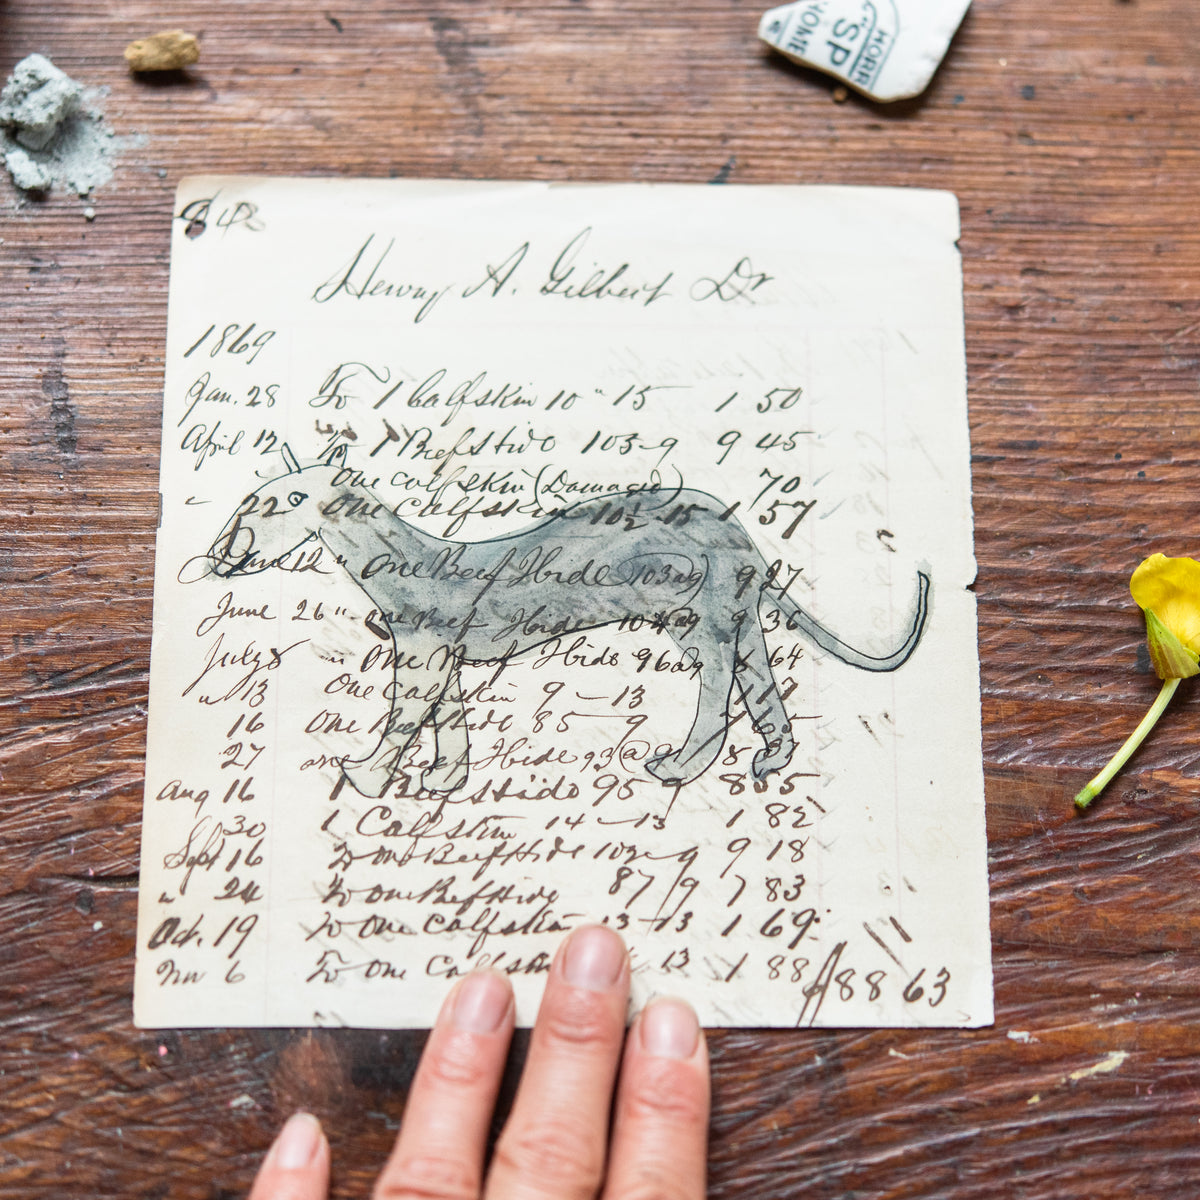 HORR
"SP
HOME
848
Henry A. Gilbert Dr
1869
Jan. 28 To 1 Calfskin 10 " 15 1 50
April 12 " 1 Beef Hide 105-9 9 45
One calfskin (Damaged) 70
" 22 One Calfskin 10½ 15 1 57
12 " One Beef Hide 103 a 9 9 27
June 26 " one Beef Hide 104 a 9 9 36
July 8 " One Beef Hide 96 a 9 8 64
" 13 One Calfskin 9 - 13 1 17
16 One Beef Hide 85 - 9 7 65
27 one Beef Hide 93 @ 9 8 37
Aug 16 1 Beef Hide 95 9 8 55
30 1 Calfskin 14 - 13 1 82
Sept 16 To one Beef Hide 102 - 9 9 18
" 24 To one Beef Hide 87 / 9 7 83
Oct. 19 To One Calfskin 13 - 13 1 69
Nov 6 To One Calfskin 13 1 88
11
$88 63